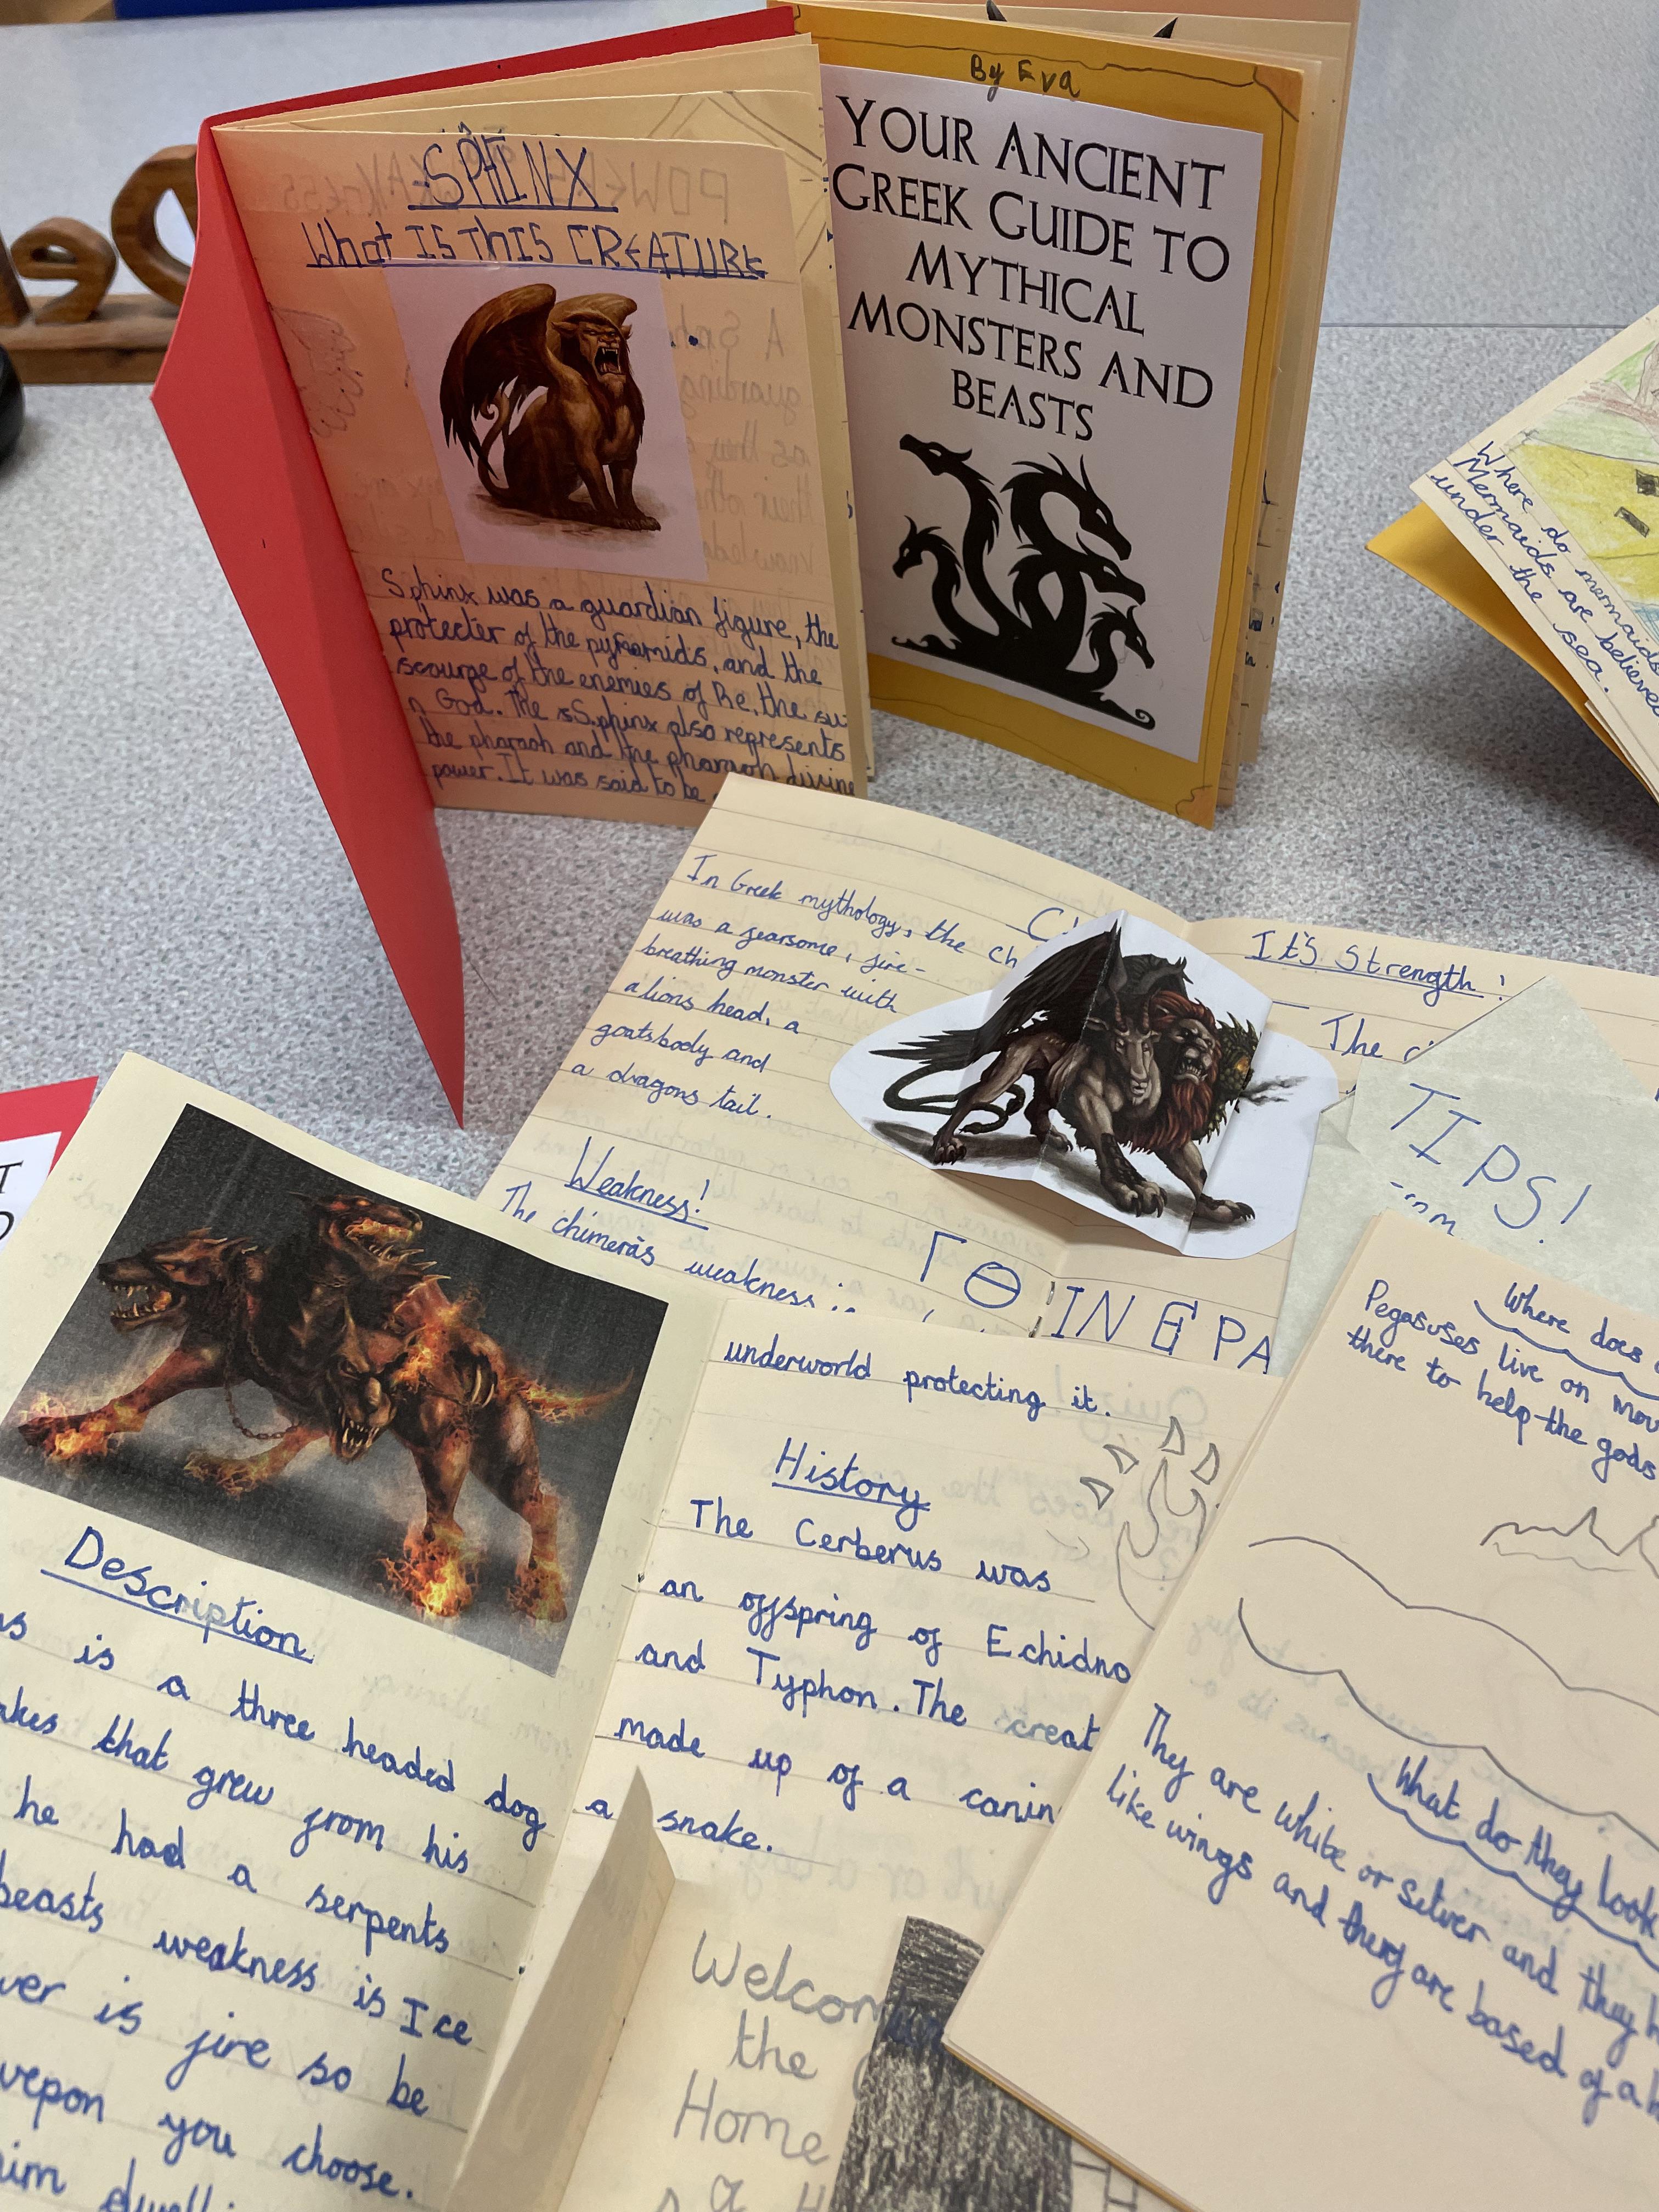 SPHINX
What IS THIS CREATURE
Sphinx was a guardian figure, the
protecter of the pyramids, and the
scourge of the enemies of Re, the su
n God. The sSphinx also represents
the pharaoh and the pharaoh divine
power. It was said to be
By Eva
YOUR ANCIENT
GREEK GUIDE TO
MYTHICAL
MONSTERS AND
BEASTS
Where do mermaids
Mermaids are believed
under the sea.
In Greek mythology, the ch
was a fearsome, fire-
breathing monster with
a lions head, a
goatsbody and
a dragons tail.
Weakness!
The chimera's weakness
It's Strength!
The
TIPS!
underworld protecting it.
History
The Cerberus was
an offspring of Echidna
and Typhon. The creat
made up of a canin
a snake.
Description
is a three headed dog
that grew from his
he had a serpents
beasts weakness is Ice
is fire so be
wepon you choose.
Where does
Pegasuses live on mou
there to help the gods
What do they look
They are white or silver and they h
like wings and they are based of a h
Welcom
the
Home
a